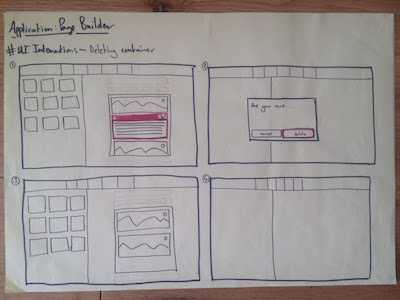 Application: Page Builder
# UI Interactions - Deleting container
1
2
Are you sure...
cancel Delete
3
4